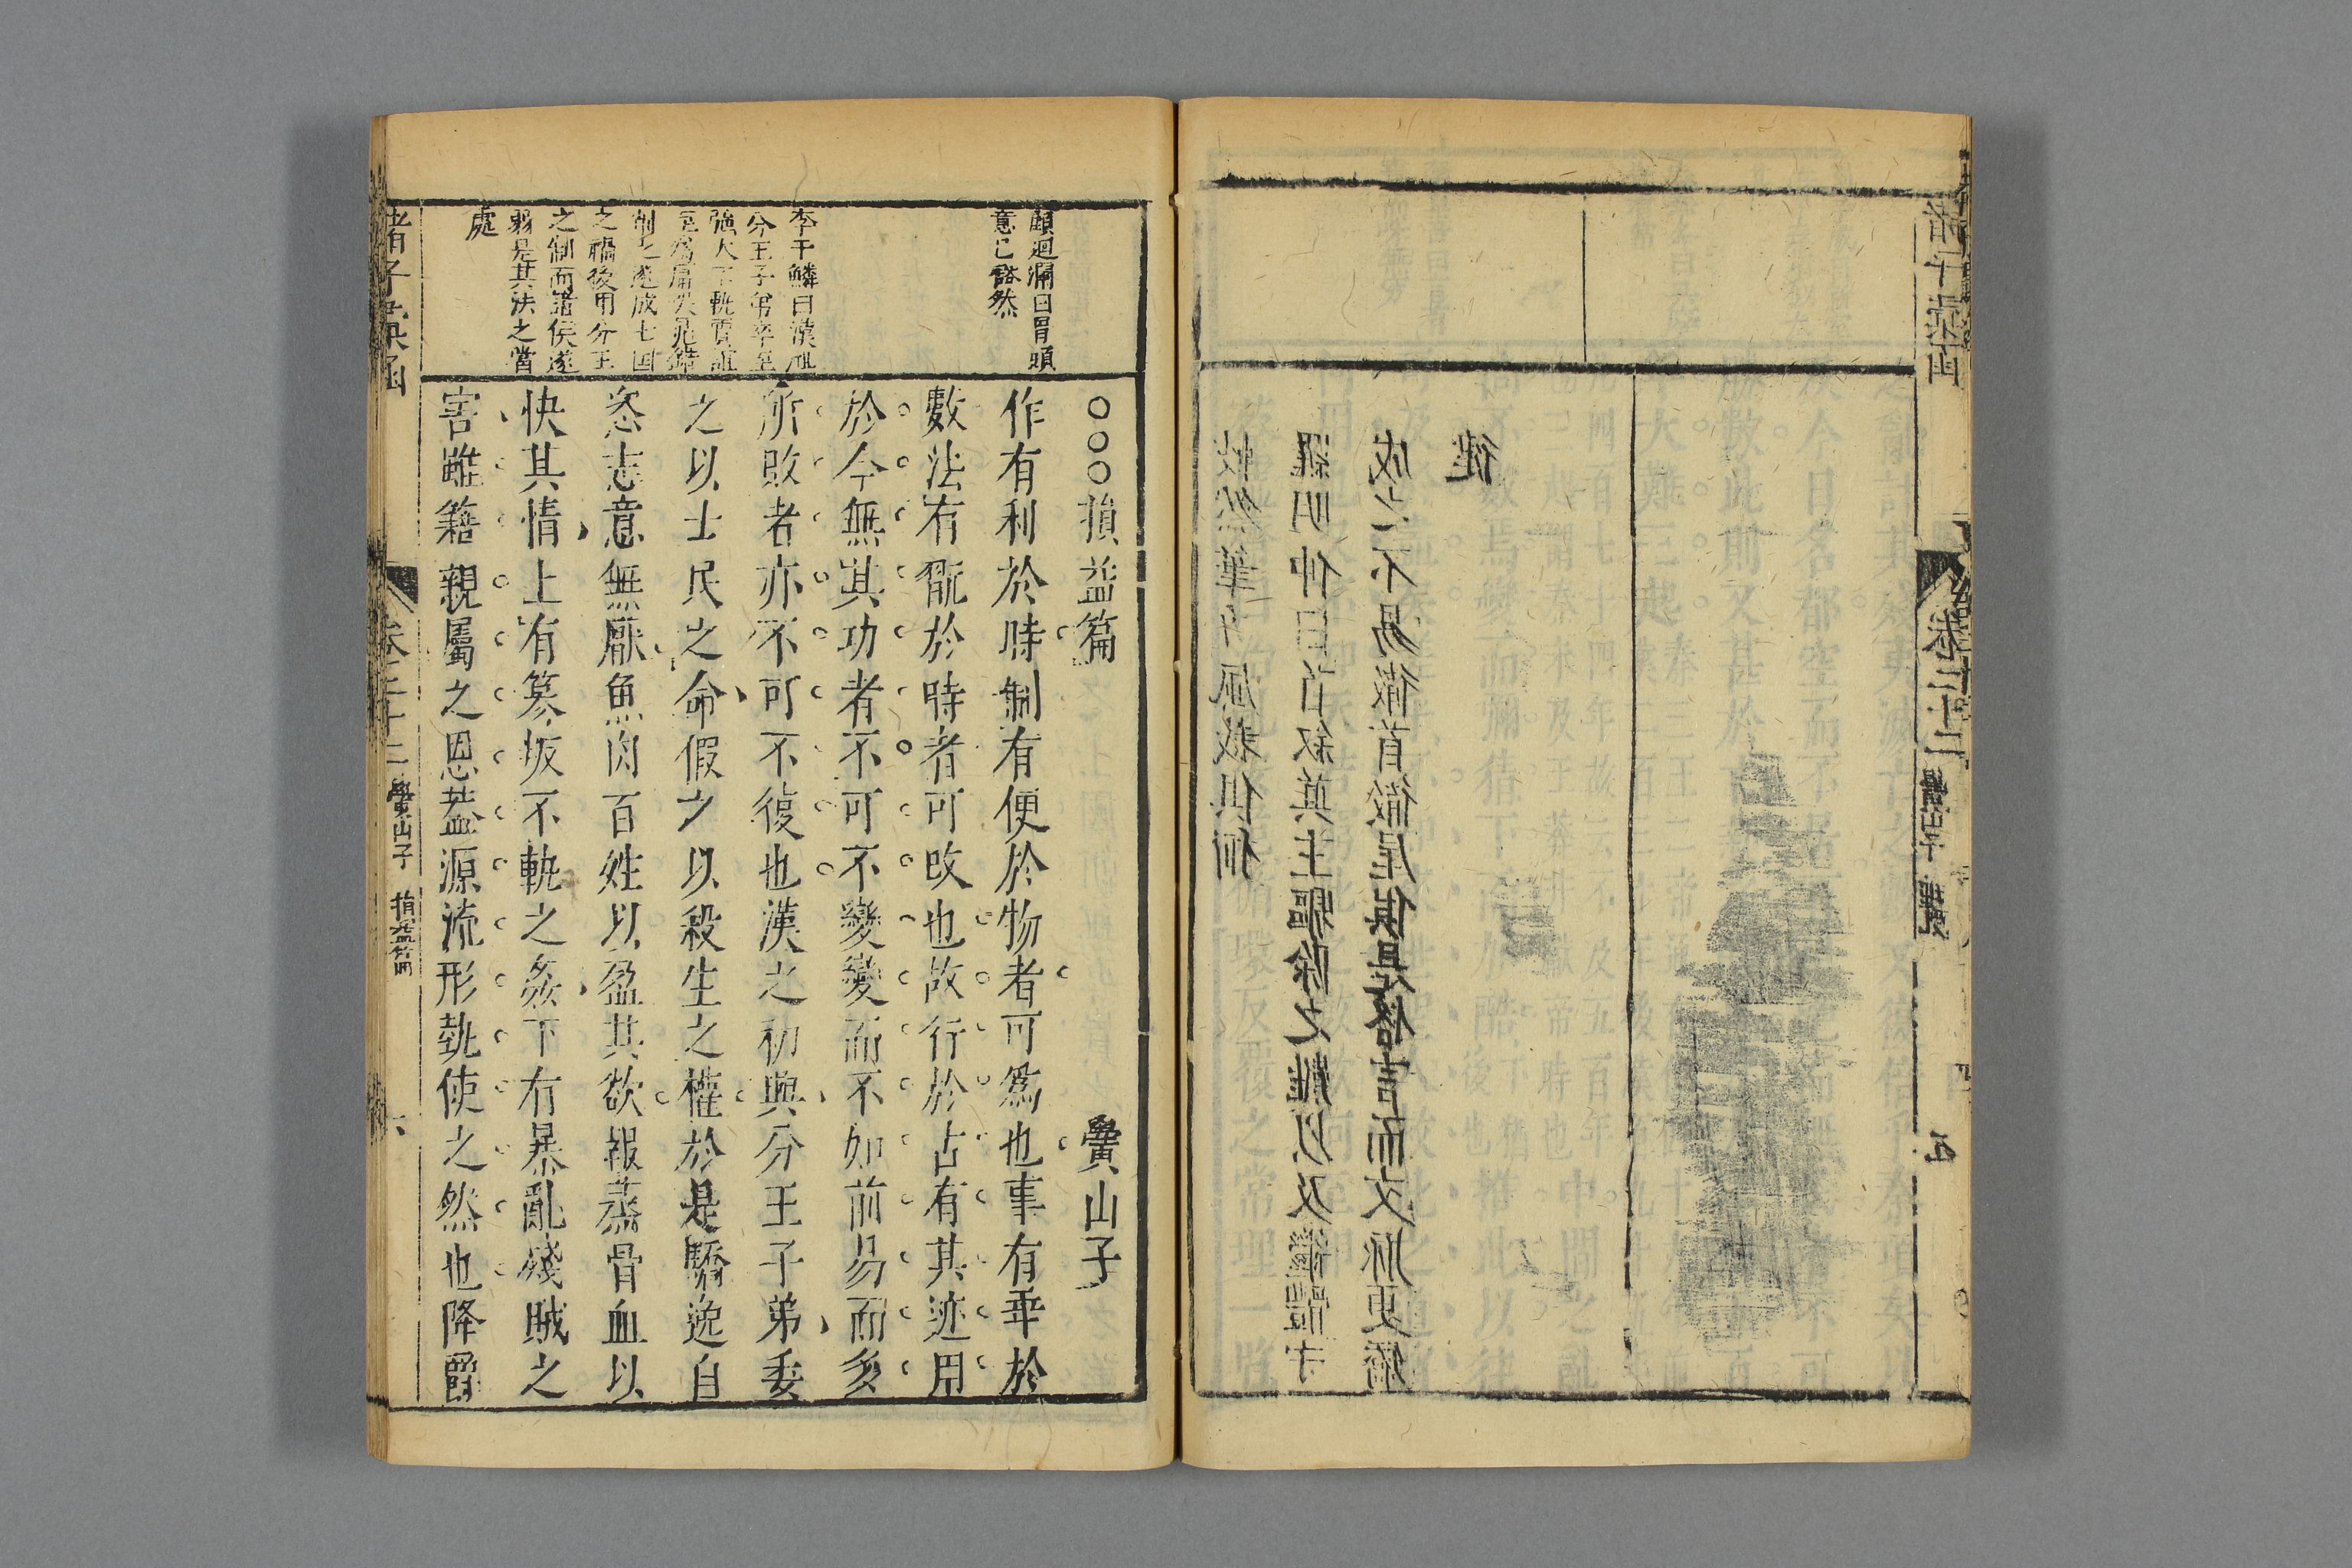 羅明仲曰首敘英主驅除之難以及繼體守
成之不易徹首徹尾俱是格言而文脉更
徤
諸子彙函 卷二十二 黌山子 理亂 五
顧迴瀾曰冒頭
意已豁然
李于鱗曰漢祖
分王子弟卒至
強大不軌賈誼
制之遂成七国
之禍後用分王
之制而諸侯遂
弱是其法之當
處
○○○損益篇 黌山子
作有利於時制有便於物者可爲也事有乖於
數法有翫於時者可改也故行於古有其迹用
於今無其功者不可不變變而不如前易而多
所敗者亦不可不復也漢之初興分王子弟委
之以士民之命假之以殺生之權於是驕逸自
恣志意無厭魚肉百姓以盈其欲報蒸骨血以
快其情上有篡叛不軌之姦下有暴亂殘賊之
害雖籍親屬之恩葢源流形埶使之然也降爵
諸子彙函 卷二十二 黌山子 損益篇 六